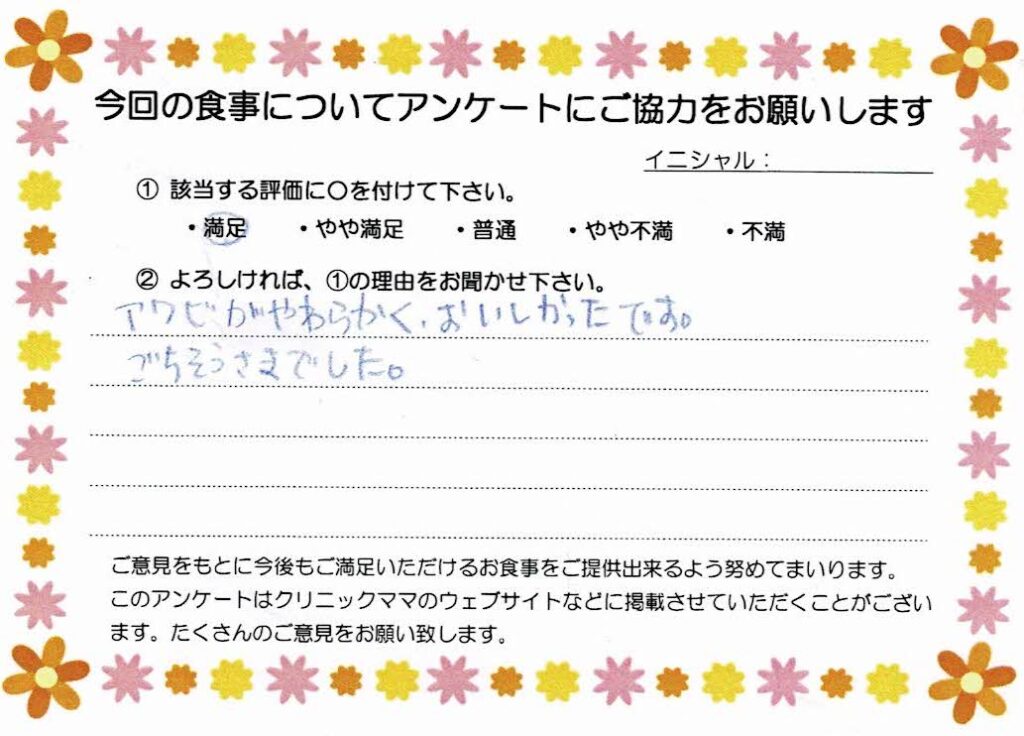 今回の食事についてアンケートにご協力をお願いします
イニシャル：
① 該当する評価に〇を付けて下さい。
・満足 ・やや満足 ・普通 ・やや不満 ・不満
② よろしければ、①の理由をお聞かせ下さい。
アワビがやわらかく、おいしかったです。
ごちそうさまでした。
ご意見をもとに今後もご満足いただけるお食事をご提供出来るよう努めてまいります。
このアンケートはクリニックママのウェブサイトなどに掲載させていただくことがござい
ます。たくさんのご意見をお願い致します。